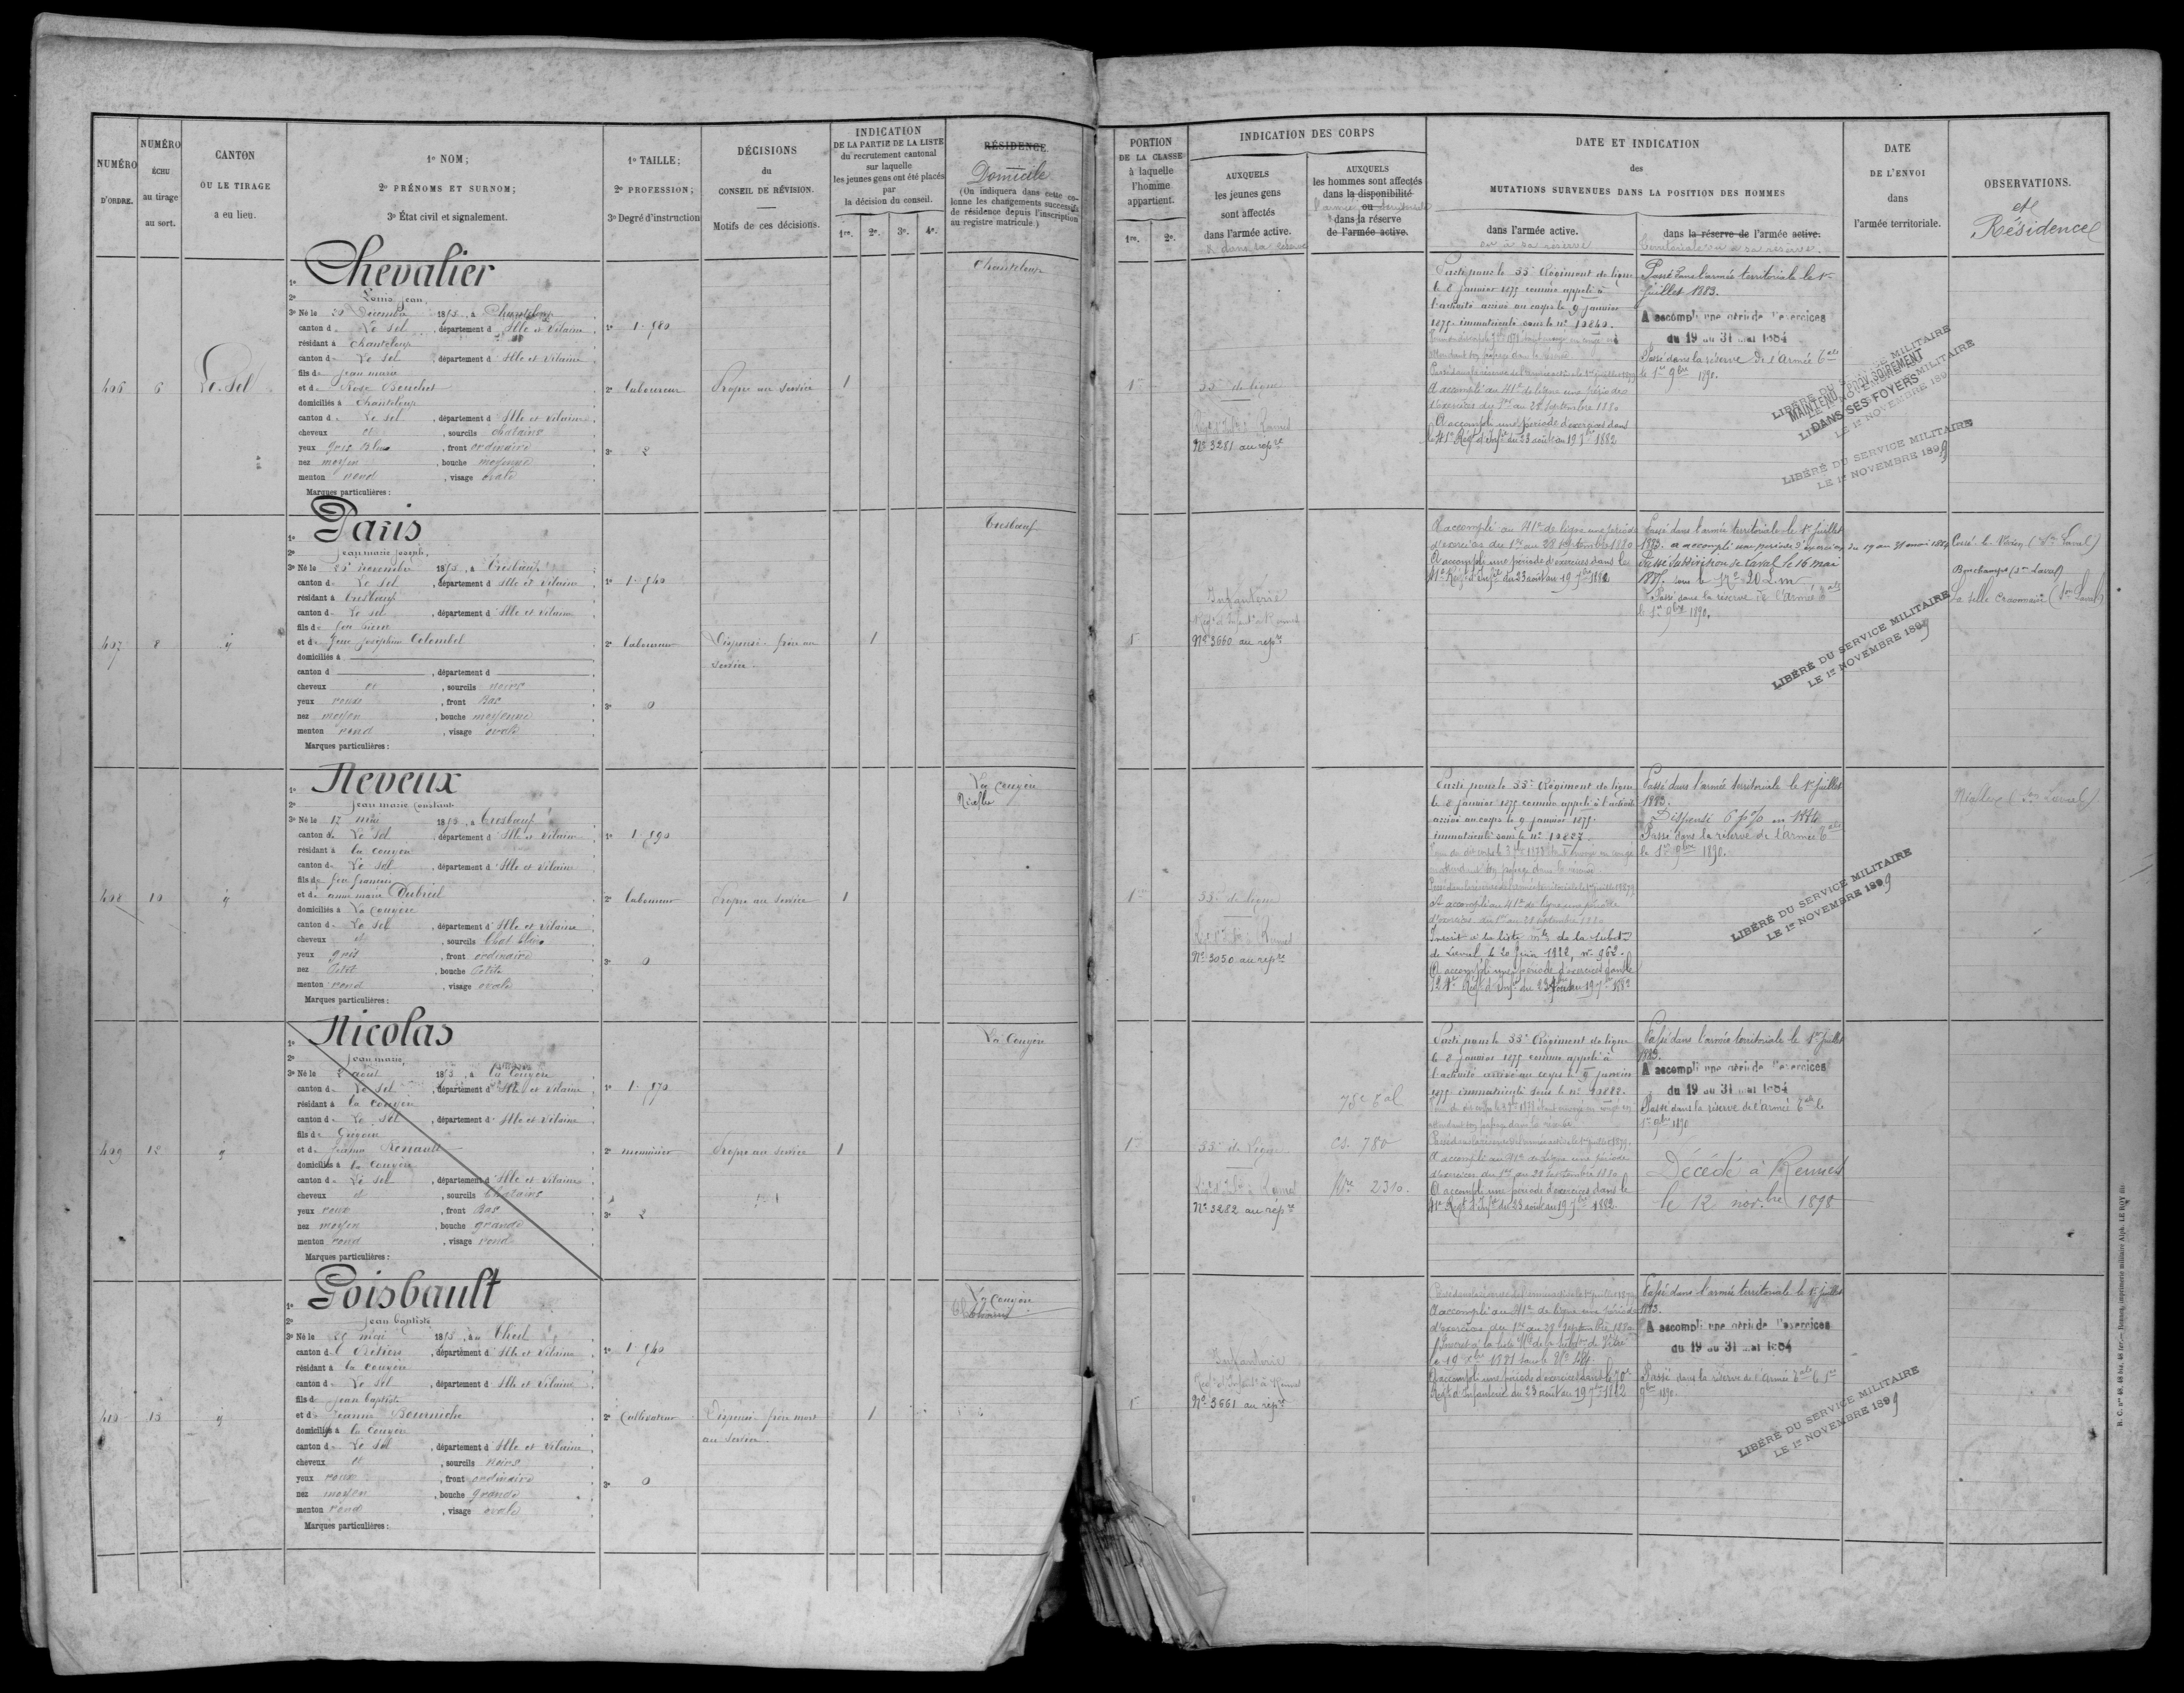 NUMÉRO
D'ORDRE.
NUMÉRO
ÉCHU
au tirage
au sort.
CANTON
OU LE TIRAGE
a eu lieu.
1° NOM;
2° PRÉNOMS ET SURNOM;
3° État civil et signalement.
1° TAILLE;
2° PROFESSION;
3° Degré d'instruction
DÉCISIONS
du
CONSEIL DE RÉVISION.
Motifs de ces décisions.
INDICATION
DE LA PARTIE DE LA LISTE
du recrutement cantonal
sur laquelle
les jeunes gens ont été placés
par
la décision du conseil.
1re. 2e. 3e. 4e.
RÉSIDENCE.
Domicile
(On indiquera dans cette co-
lonne les changements successifs
de résidence depuis l'inscription
au registre matricule.)
PORTION
DE LA CLASSE
à laquelle
l'homme
appartient.
1re. 2e.
INDICATION DES CORPS
AUXQUELS
les jeunes gens
sont affectés
dans l'armée active.
& dans la réserve
AUXQUELS
les hommes sont affectés
dans la disponibilité
ou
l'armée territoriale
dans la réserve
de l'armée active.
DATE ET INDICATION
des
MUTATIONS SURVENUES DANS LA POSITION DES HOMMES
dans l'armée active.
ou à sa réserve
dans la réserve de l'armée active.
territoriale ou à sa réserve.
DATE
DE L'ENVOI
dans
l'armée territoriale.
OBSERVATIONS.
et
Résidence
406
6
Le Sel
1° Chevalier
2° Louis Jean
3° Né le 20 Décembre 1853, à Chanteloup
canton de Le Sel, département d'Ille et Vilaine
résidant à Chanteloup
canton de Le Sel, département d'Ille et Vilaine
fils de Jean marie
et de Rose Bouchet
domiciliés à Chanteloup
canton de Le Sel, département d'Ille et Vilaine
cheveux et, sourcils chatains
yeux gris bleus, front ordinaire
nez moyen, bouche moyenne
menton rond, visage ovale
Marques particulières:
1° 1.580
2° laboureur
3° 2
Propre au service
1
Chanteloup
1re
55e de ligne
N° 3281 au répre
Parti pour le 55e Régiment de ligne
le 8 janvier 1875 comme appelé à
l'activité arrivé au corps le 9 janvier
1875. immatriculé sous le n° 10840.
A accompli au 41e de ligne une période
d'exercices du 1er au 28 Septembre 1880
A accompli une période d'exercices dans
le 41e Régt d'Infie du 23 août au 19 7bre 1882
Passé dans l'armée territoriale le 1er
Juillet 1883.
A accompli une période d'exercices
du 19 au 31 mai 1884
Passé dans la réserve de l'Armée Tale
le 1er 9bre 1890.
LIBÉRÉ DU SERVICE MILITAIRE
MAINTENU PROVISOIREMENT
DANS SES FOYERS
LE 1er NOVEMBRE 189
LIBÉRÉ DU SERVICE MILITAIRE
LE 1er NOVEMBRE 1899
407
8
d°
1° Paris
2° Jean marie Joseph
3° Né le 25 novembre 1853, à Tresboeuf
canton de Le Sel, département d'Ille et Vilaine
résidant à Tresboeuf
canton de Le Sel, département d'Ille et Vilaine
fils de feu Pierre
et de feue Joséphine Colombel
domiciliés à
canton d, département d
cheveux et, sourcils noirs
yeux roux, front Bas
nez moyen, bouche moyenne
menton rond, visage ovale
Marques particulières:
1° 1.540
2° laboureur
3° 0
Dispensé. frère au
service.
1
Tresboeuf
1
Infanterie
Régt d'Infant. à Rennes
N° 3660 au répre
A accompli au 41e de ligne une période
d'exercices du 1er au 28 septembre 1880
A accompli une période d'exercices dans le
41e Régt d'Infie du 23 août au 19 7bre 1882
Passé dans l'armée territoriale le 1er Juillet
1883. a accompli une période d'exercices du 19 au 31 mai 1884
Passé subdivision de Laval le 16 mai
1887. sous le N° 20 L.m
Passé dans la réserve de l'Armée Tale
le 1er 9bre 1890.
Cossé-le-Vivien (Son Laval)
Bouchamps (Son Laval)
La Selle Craonnaise (Son Laval)
LIBÉRÉ DU SERVICE MILITAIRE
LE 1er NOVEMBRE 1899
408
10
d°
1° Neveux
2° Jean marie Constant
3° Né le 17 mai 1853, à Tresboeuf
canton de Le Sel, département d'Ille et Vilaine
résidant à la Couyère
canton de Le Sel, département d'Ille et Vilaine
fils de feu François
et de anne marie Dubreil
domiciliés à La Couyère
canton de Le Sel, département d'Ille et Vilaine
cheveux et, sourcils Chat. Clairs
yeux gris, front ordinaire
nez Petit, bouche Petite
menton rond, visage ovale
Marques particulières:
1° 1.590
2° laboureur
3° 0
Propre au service
1
La Couyère
Niafles
1re
55e de ligne
Régt d'Infie à Rennes
N° 3050 au répre
Parti pour le 55e Régiment de ligne
le 8 janvier 1875 comme appelé à l'activité
arrivé au corps le 9 janvier 1875.
immatriculé sous le n° 10827.
A accompli au 41e de ligne une période
d'exercices du 1er au 28 septembre 1880
Inscrit à la liste mle de la subdon
de Laval, le 20 Juin 1882, n° 962.
A accompli une période d'exercices dans le
124e Régt d'Infie du 23 août au 19 7bre 1882
Passé dans l'armée territoriale le 1er Juillet
1883.
Dispensé 6 p% en 1884
Passé dans la réserve de l'Armée Tale
le 1er 9bre 1890.
Niafles (Son Laval)
LIBÉRÉ DU SERVICE MILITAIRE
LE 1er NOVEMBRE 1899
409
12
d°
1° Nicolas
2° Jean marie
3° Né le 2 aout 1853, à La Couyère
canton de Le Sel, département d'Ille et Vilaine
résidant à la Couyère
canton de Le Sel, département d'Ille et Vilaine
fils de Grégoire
et de Renault
domiciliés à la Couyère
canton de Le Sel, département d'Ille et Vilaine
cheveux et, sourcils Chatains
yeux roux, front Bas
nez moyen, bouche grande
menton rond, visage rond
Marques particulières:
1° 1.570
2° menuisier
3° 2
Propre au service
1
La Couyère
1re
55e de ligne
Régt d'Infie à Rennes
N° 3282 au répre
75e Tal
Cl. 780
Mle 2310.
Parti pour le 55e Régiment de ligne
le 8 janvier 1875 comme appelé à
l'activité arrivé au corps le 9 janvier
1875 immatriculé sous le n° 10882.
A accompli au 41e de ligne une période
d'exercices du 1er au 28 septembre 1880
A accompli une période d'exercices dans le
41e Régt d'Infie du 23 août au 19 7bre 1882.
Passé dans l'armée territoriale le 1er Juillet
1883.
A accompli une période d'exercices
du 19 au 31 mai 1884
Passé dans la réserve de l'armée Tale le
1er 9bre 1890
Décédé à Rennes
le 12 novbre 1898
410
15
d°
1° Goisbault
2° Jean baptiste
3° Né le 25 mai 1853, au Theil
canton de Retiers, département d'Ille et Vilaine
résidant à la Couyère
canton de Le Sel, département d'Ille et Vilaine
fils de Jean baptiste
et de Jeanne Bourniche
domiciliés à la Couyère
canton de Le Sel, département d'Ille et Vilaine
cheveux et, sourcils noirs
yeux roux, front ordinaire
nez moyen, bouche grande
menton rond, visage ovale
Marques particulières:
1° 1.540
2° Cultivateur
3° 0
Dispensé frère mort
au service.
1
La Couyère
1
Infanterie
Régt d'Infant. à Rennes
N° 3661 au répre
A accompli au 41e de ligne une période
d'exercices du 1er au 28 Septembre 1880
Inscrit à la liste Mle de la subdon de Vitré
A accompli une période d'exercices dans le 70e
Régt d'Infanterie du 23 août au 19 7bre 1882
Passé dans l'armée territoriale le 1er Juillet
1883.
A accompli une période d'exercices
du 19 au 31 mai 1884
Passé dans la réserve de l'Armée Tale le 1er
9bre 1890.
LIBÉRÉ DU SERVICE MILITAIRE
LE 1er NOVEMBRE 1899